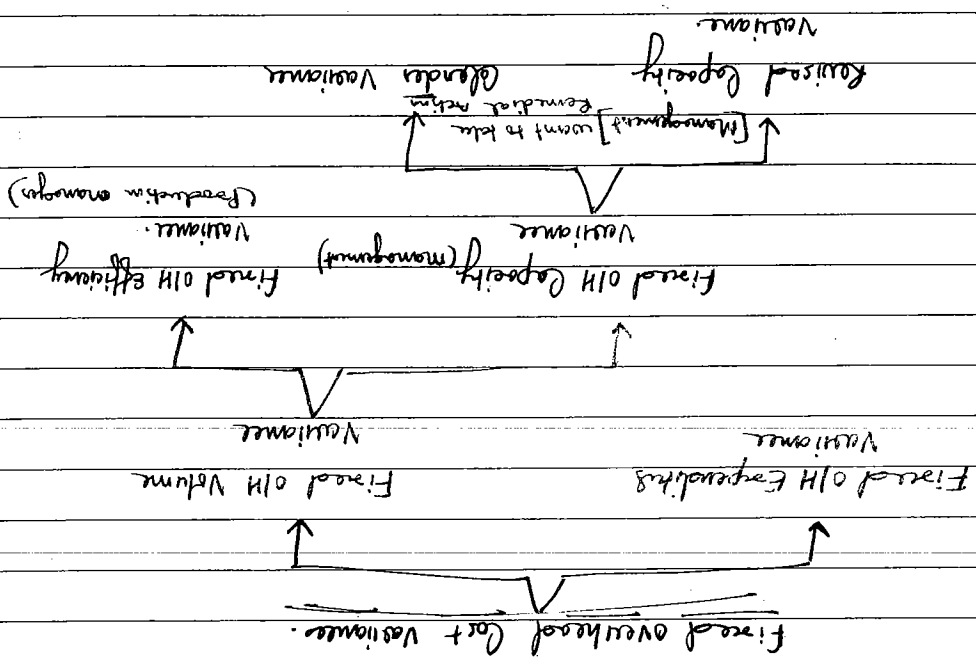 Fixed overhead Cost Variance.
Fixed O/H Expenditure Variance
Fixed O/H Volume Variance
Fixed O/H Capacity Variance (Management)
Fixed O/H Efficiency Variance.
(Production manager)
[Management] want to take Remedial Action
Revised Capacity Variance.
Calender Variance